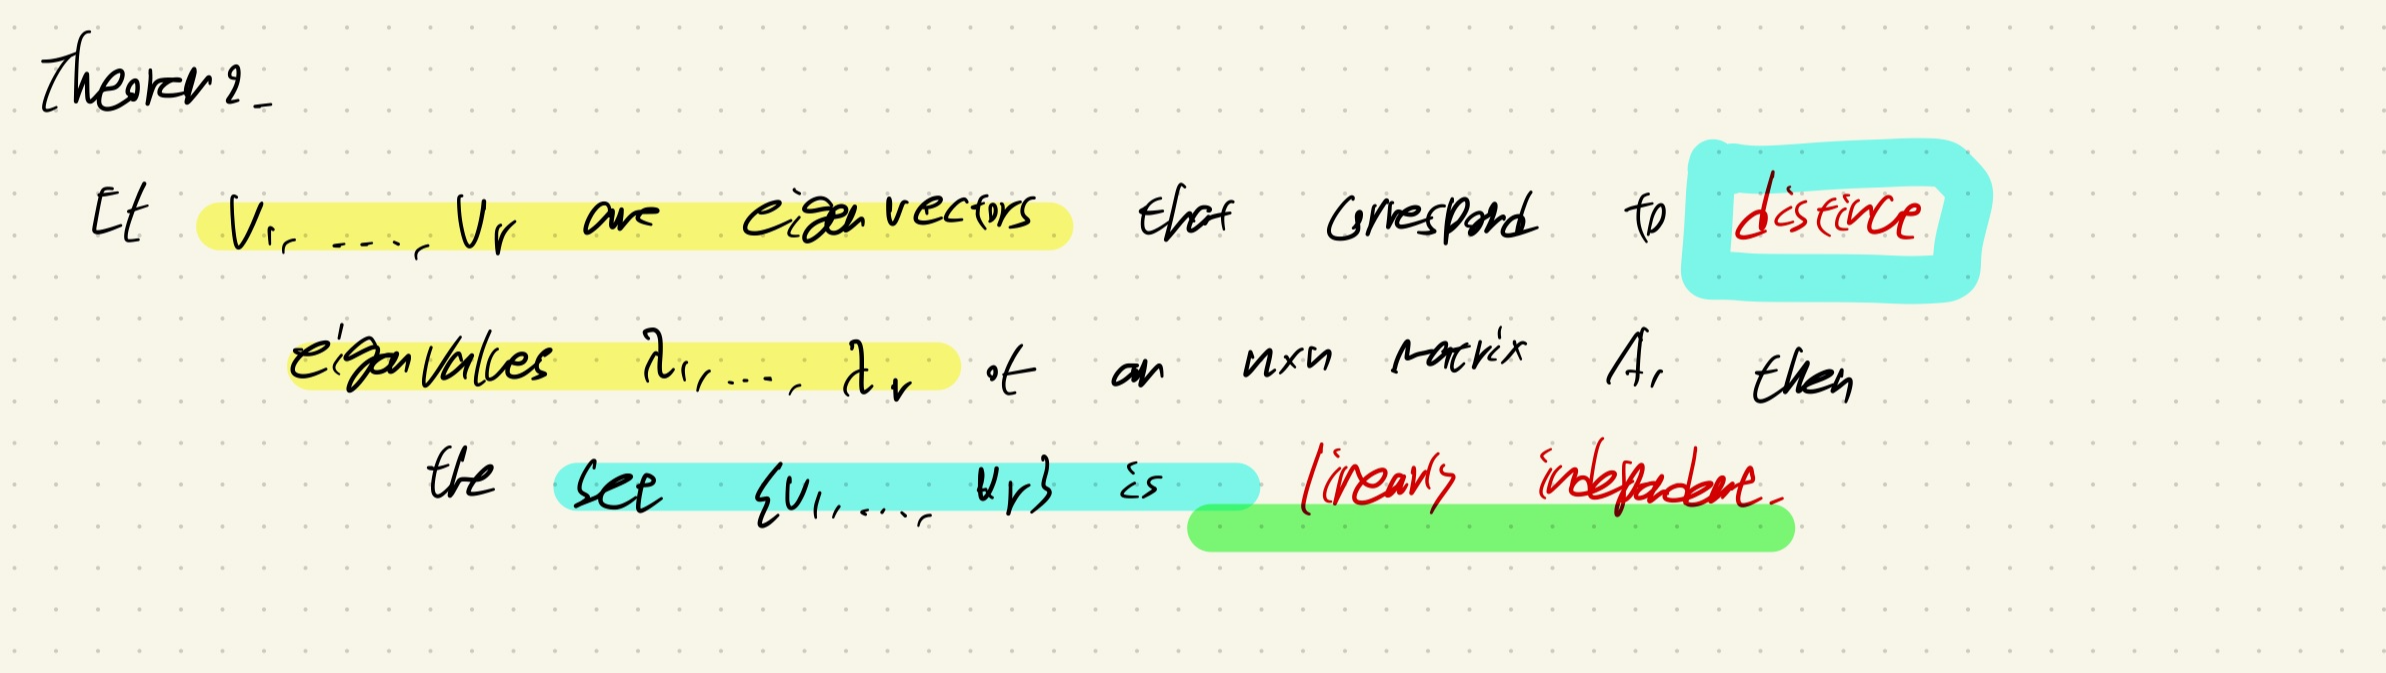 Theorem 2.
If v₁, ...., vᵣ are eigenvectors that correspond to distinct
eigenvalues λ₁, ...., λᵣ of an n×n matrix A, then
the set {v₁, ...., vᵣ} is linearly independent.